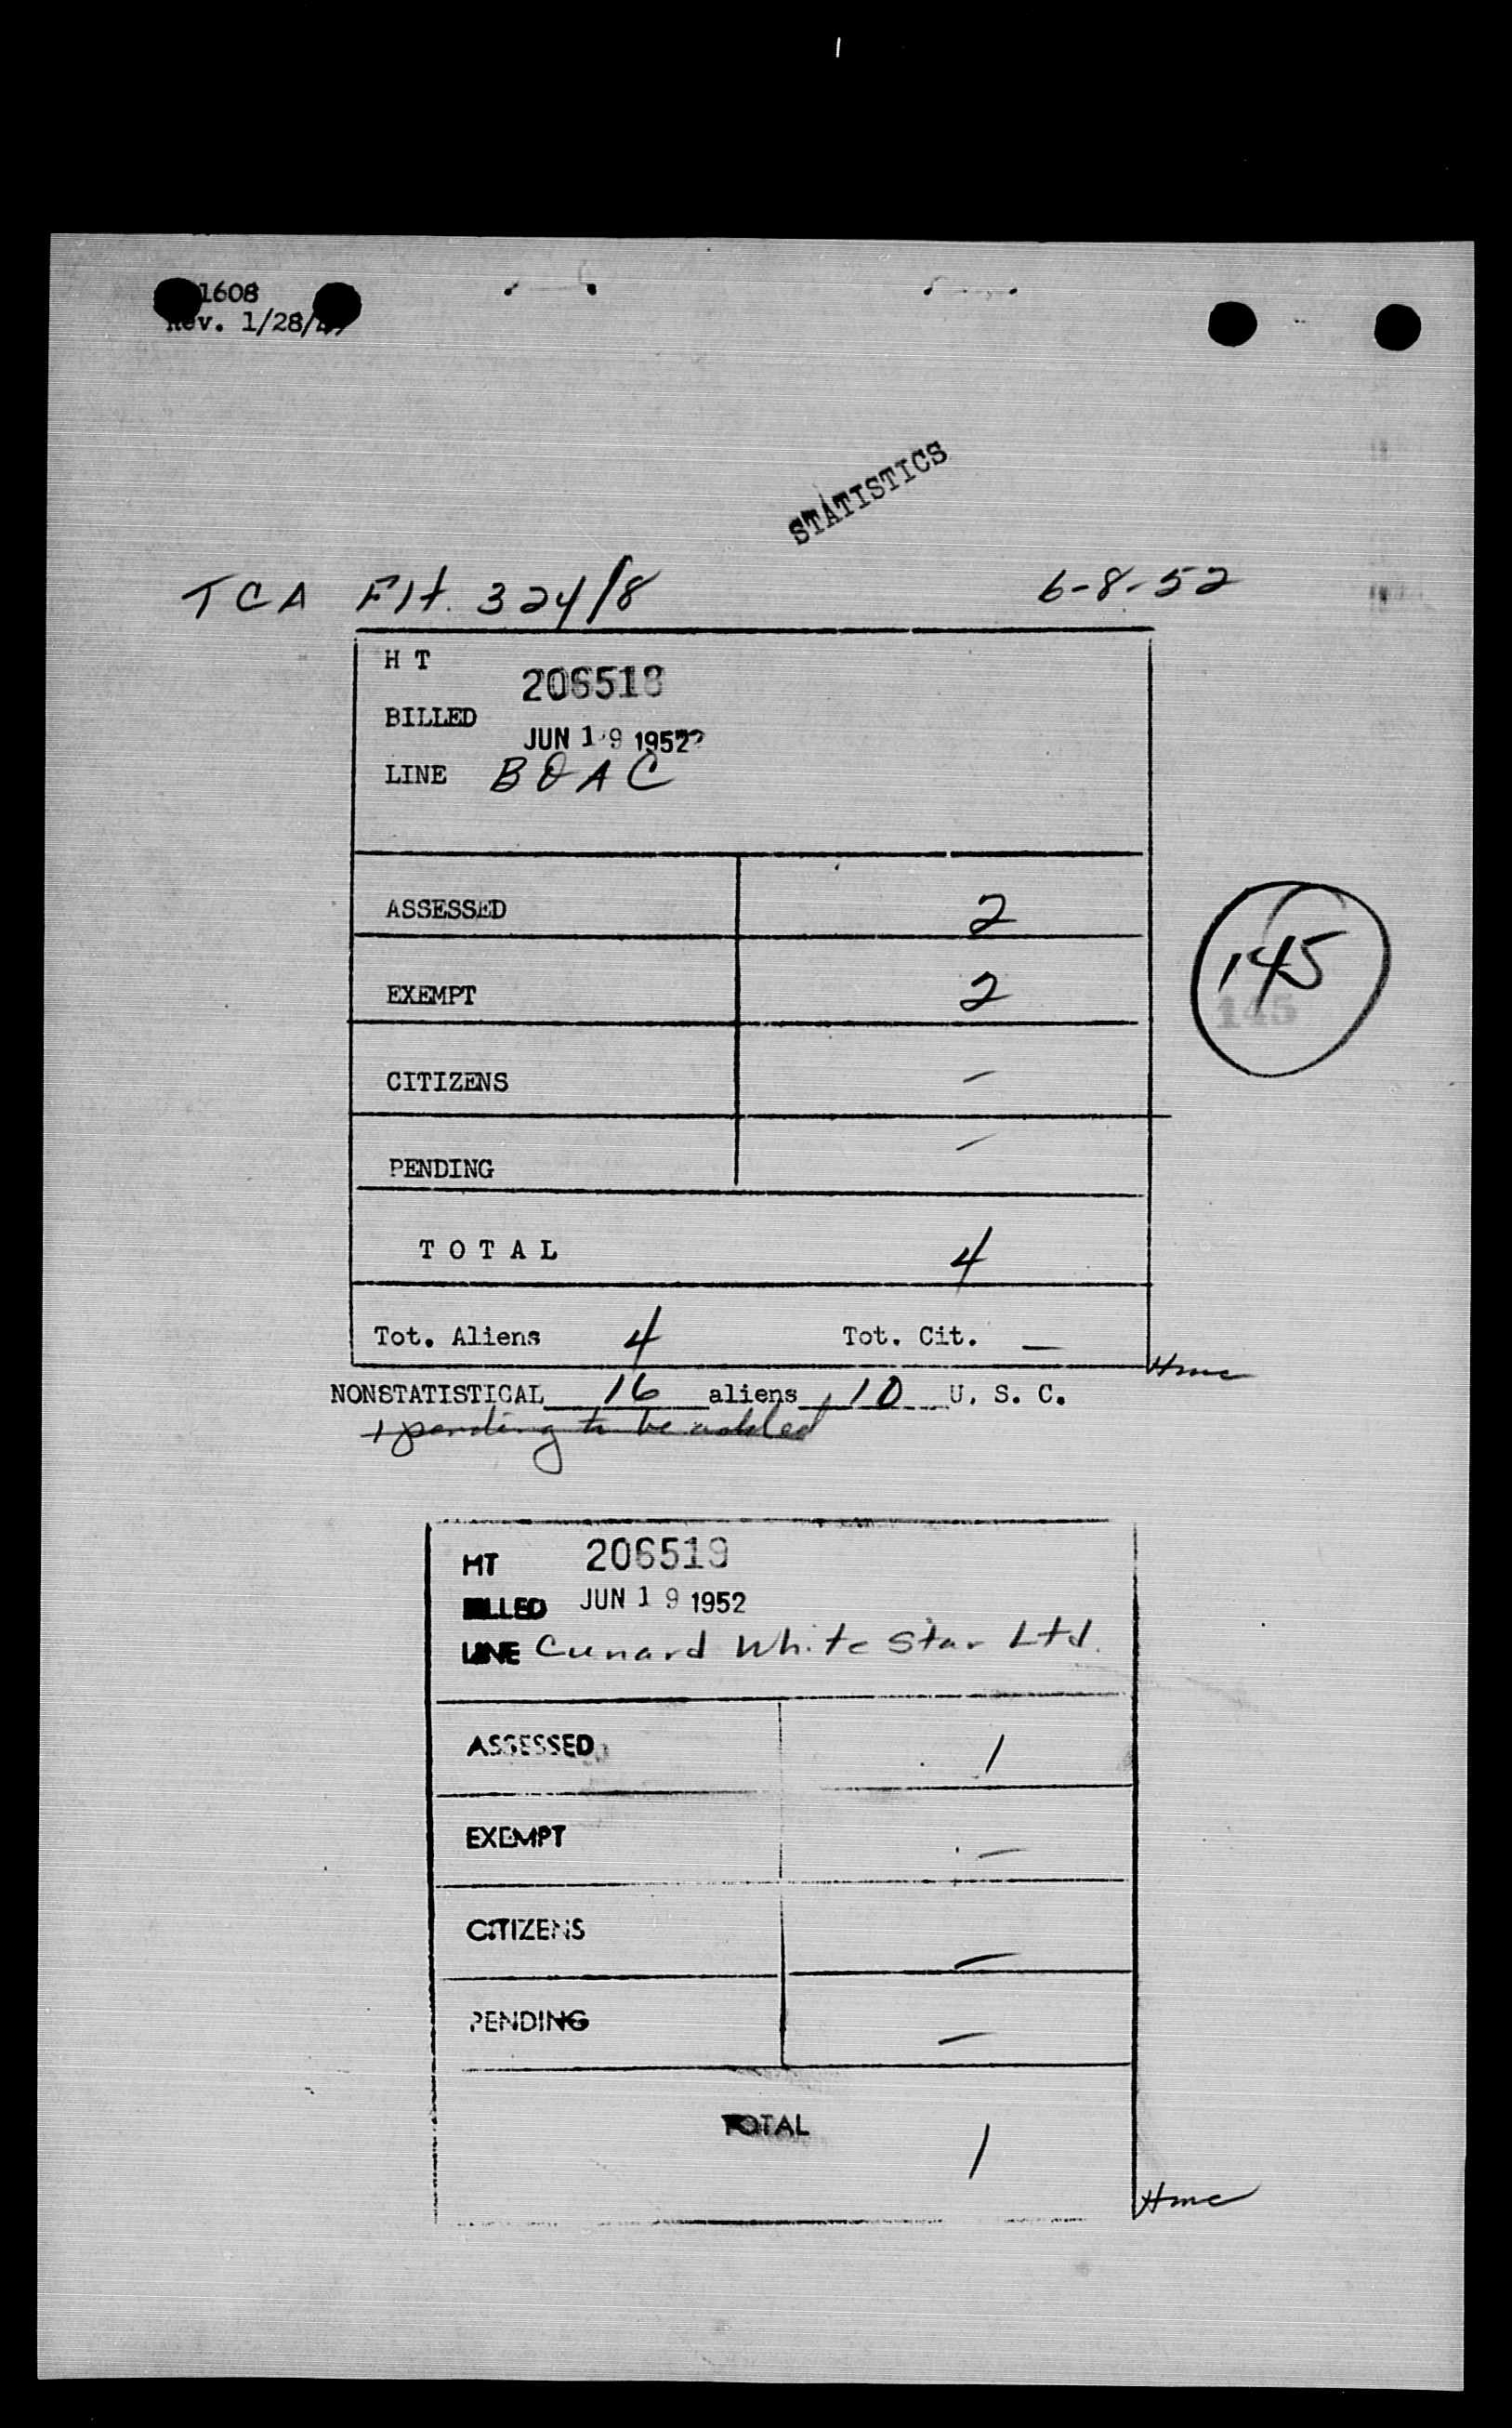 1608
Rev. 1/28/49
STATISTICS
TCA Flt. 324/8 6-8-52
H T 206518
BILLED JUN 19 1952
LINE BOAC
ASSESSED 2
EXEMPT 2
145
145
CITIZENS —
PENDING —
TOTAL 4
Tot. Aliens 4 Tot. Cit. —
Hmc
NONSTATISTICAL 16 aliens 10 U. S. C.
1 pending to be added
HT 206519
BILLED JUN 19 1952
LINE Cunard White Star Ltd.
ASSESSED 1
EXEMPT —
CITIZENS —
PENDING —
TOTAL 1
Hmc